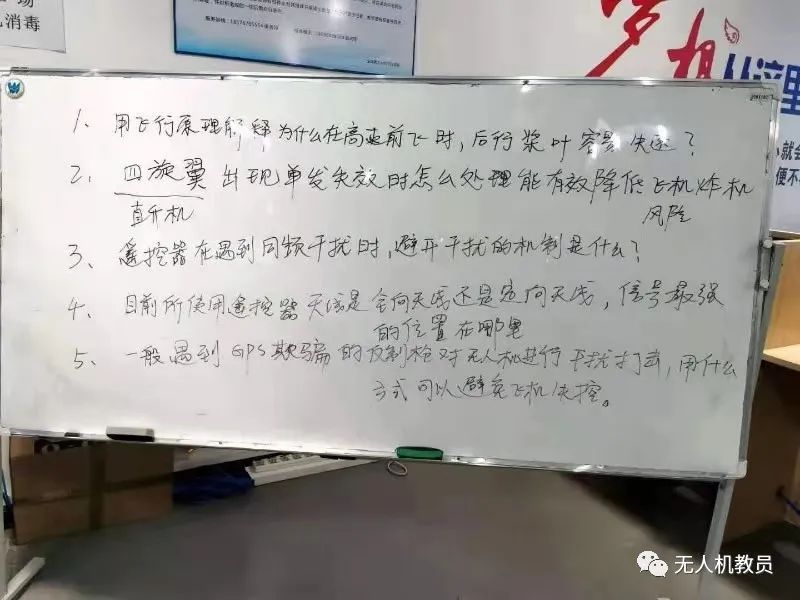 场
消毒
梦想从这里
就会
便不
1、用飞行原理解释为什么在高速前飞时，后行桨叶容易失速？
2、四旋翼出现单发失效时怎么处理能有效降低飞机炸机
直升机
风险
3、遥控器在遇到同频干扰时，避开干扰的机制是什么？
4、目前所使用遥控器天线是全向天线还是定向天线，信号最强
的位置在哪里
5、一般遇到GPS欺骗的反制枪对无人机进行干扰打击，用什么
方式可以避免飞机失控。
无人机教员